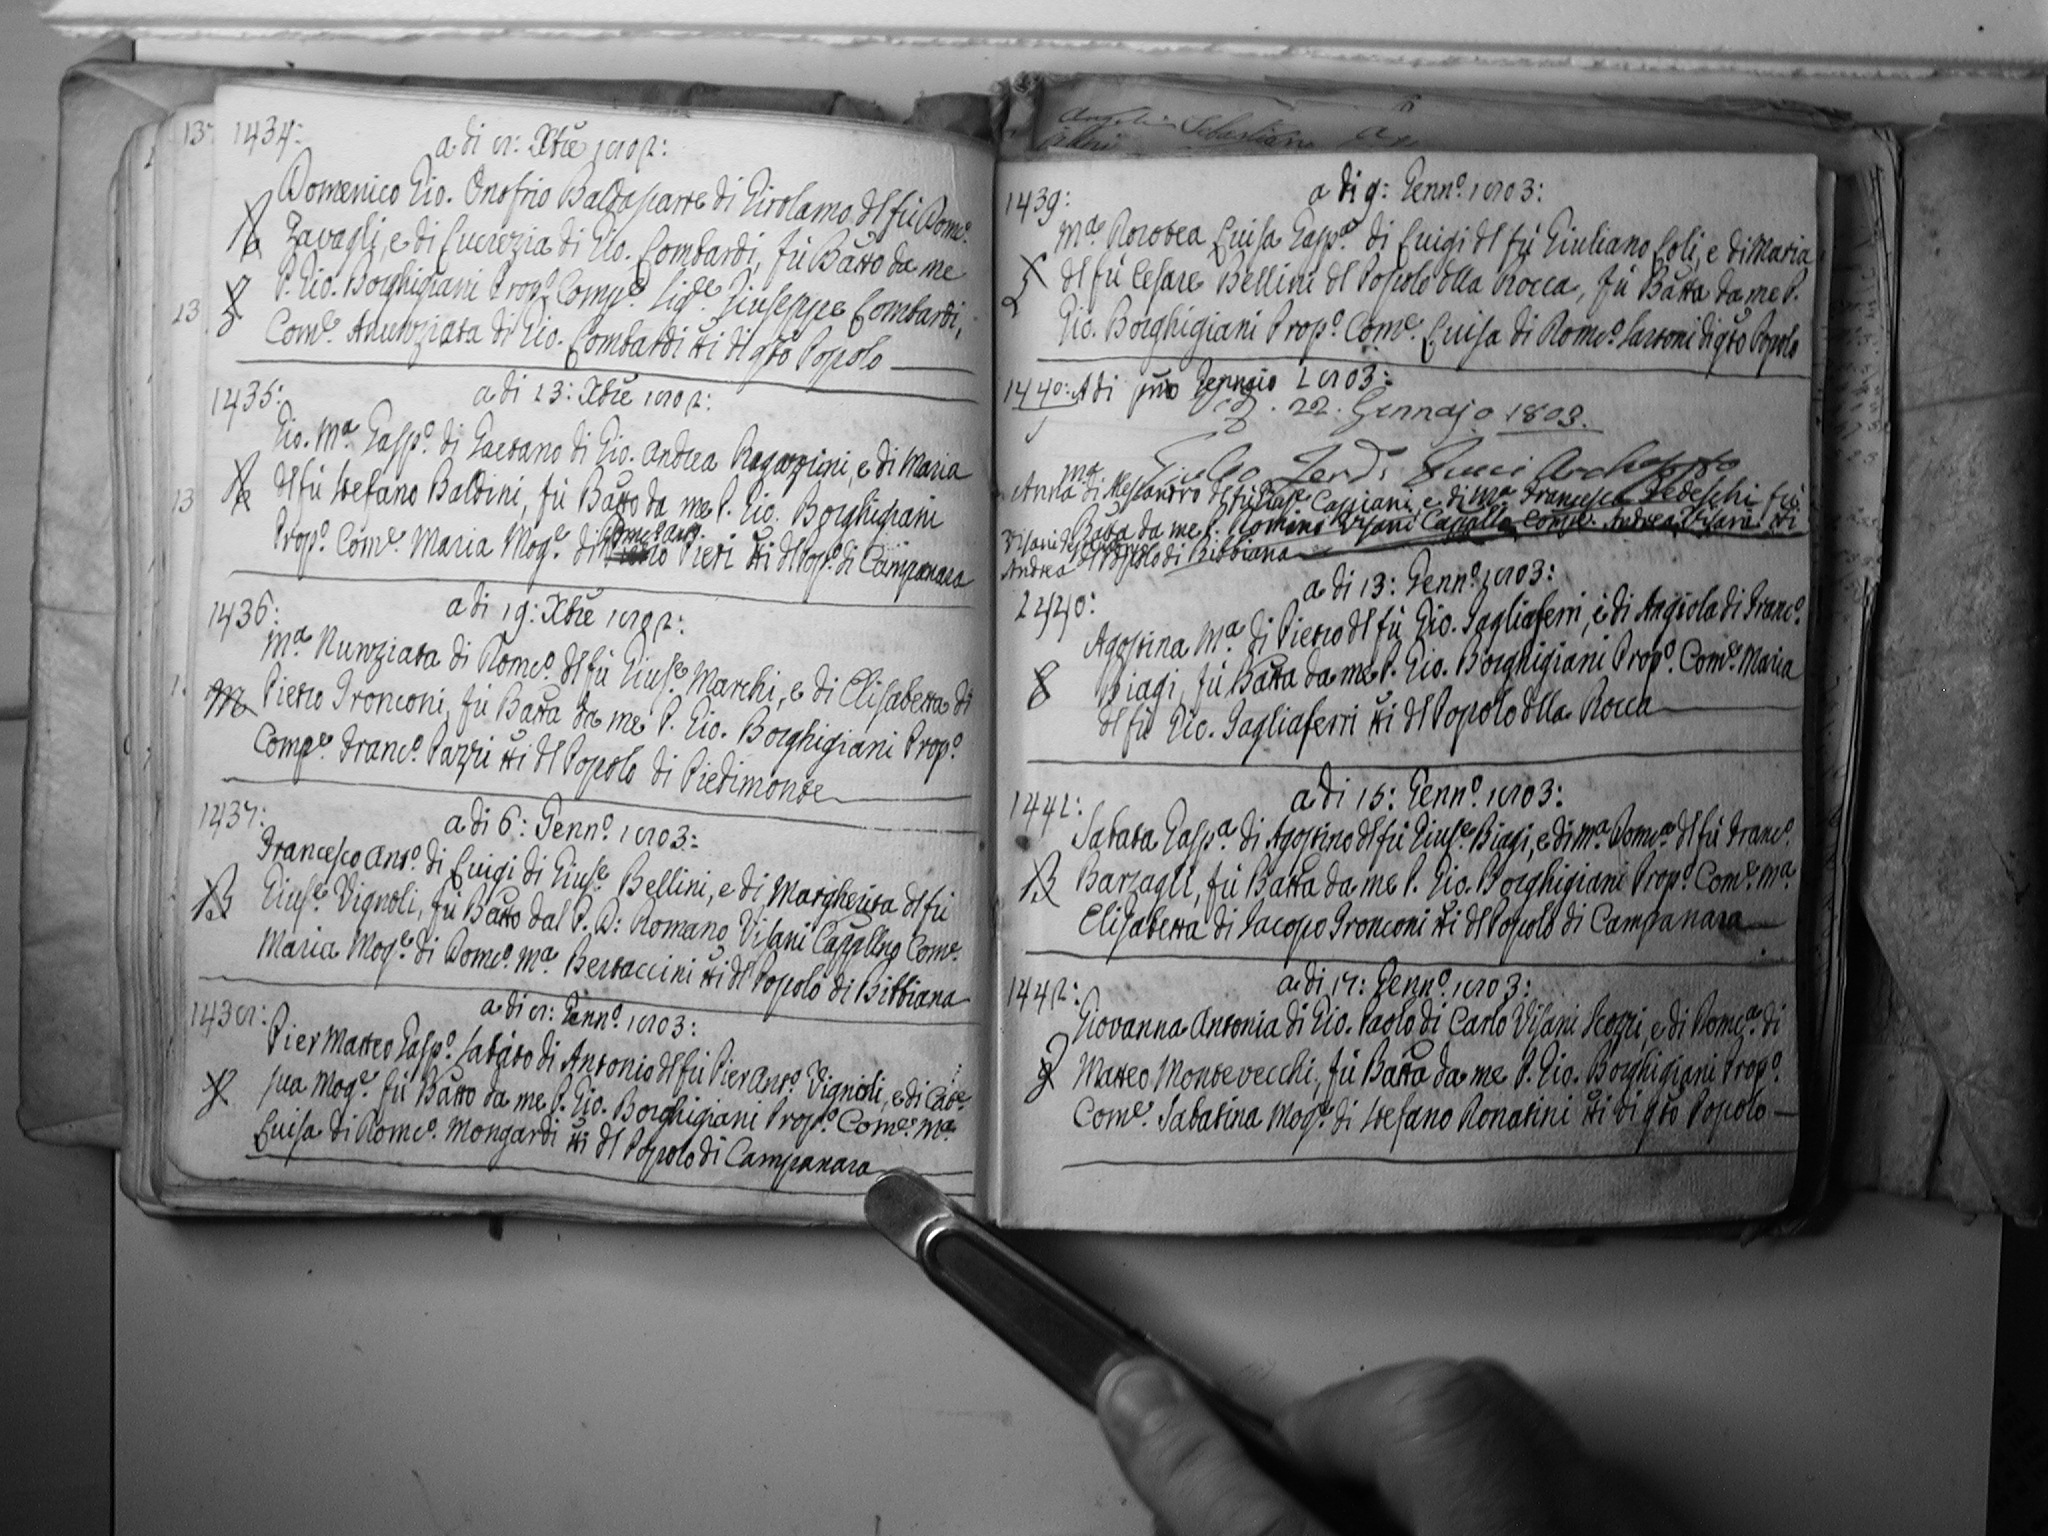 1434:
a di 8: Xbre 1802:
Domenico Gio. Onofrio Baldasarre di Girolamo dl fù Domco.
Zavagli, e di Lucrezia di Gio. Lombardi, fù Batto da me
P. Gio. Borghigiani Propo. Compe. Sigre. Giuseppe Lombardi,
Come. Anunziata di Gio. Lombardi tti di qsto Popolo
1435:
a di 13: Xbre 1802:
Gio. Ma. Gaspo. di Gaetano di Gio. Andrea Ragazzini, e di Maria
dl fù Stefano Baldini, fù Batto da me P. Gio. Borghigiani
Propo. Come. Maria Moge. di Pieri tti dl Popo. di Campanara
1436:
a di 19: Xbre 1802:
Ma. Nunziata di Domco. dl fù Giuse. Marchi, e di Elisabetta di
Pietro Tronconi, fù Batta da me P. Gio. Borghigiani Propo.
Compe. Franco. Pazzi tti dl Popolo di Piedimonte
1437:
a di 6: Genno. 1803:
Francesco Anto. di Luigi di Giuse. Bellini, e di Margherita dl fù
Giuse. Vignoli, fù Batto dal P. D: Romano Visani Cappllno Come.
Maria Moge. di Domco. Ma. Bertaccini tti dl Popolo di Bibbiana
1438:
a di 8: Genno. 1803:
Pier Matteo Gaspo. Sabato di Antonio dl fù Pier Anto. Vignoli, e di Cate.
sua Moge. fù Batto da me P. Gio. Borghigiani Propo. Come. Ma.
Luisa di Domco. Mongardi tti dl Popolo di Campanara
1439:
a di 9: Genno. 1803:
Ma. Dorotea Luisa Gaspa. di Luigi dl fù Giuliano Coli, e di Maria
dl fù Cesare Bellini dl Popolo dlla Rocca, fù Batta da me P.
Gio. Borghigiani Propo. Come. Luisa di Domco. Sartoni di qsto Popolo
1440: Adi pmo Gennaio 1803:
22. Gennajo 1803.
Anna Ma. di Alessandro dl fù Giuse. Cassiani, e di Ma. Francesca Tedeschi fù
Batta da me P. Romano Visani Cappllo Compe. Andrea Visani tti
dl Popolo di Bibbiana
Visani
Andrea
1440:
a di 13: Genno. 1803:
Agostina Ma. di Pietro dl fù Gio. Tagliaferri, e di Angiola di Franco.
Biagi, fù Batta da me P. Gio. Borghigiani Propo. Come. Maria
dl fù Gio. Tagliaferri tti dl Popolo dlla Rocca
1441:
a di 15: Genno. 1803:
Sabata Gaspa. di Agostino dl fù Giuse. Biagi, e di Ma. Domca. dl fù Franco.
Barzagli, fù Batta da me P. Gio. Borghigiani Propo. Come. Ma.
Elisabetta di Jacopo Tronconi tti dl Popolo di Campanara
1442:
a di 17: Genno. 1803:
Giovanna Antonia di Gio. Paolo di Carlo Visani Scozzi, e di Domca. di
Matteo Montevecchi, fù Batta da me P. Gio. Borghigiani Propo.
Come. Sabatina Moge. di Stefano Donatini tti di qsto Popolo